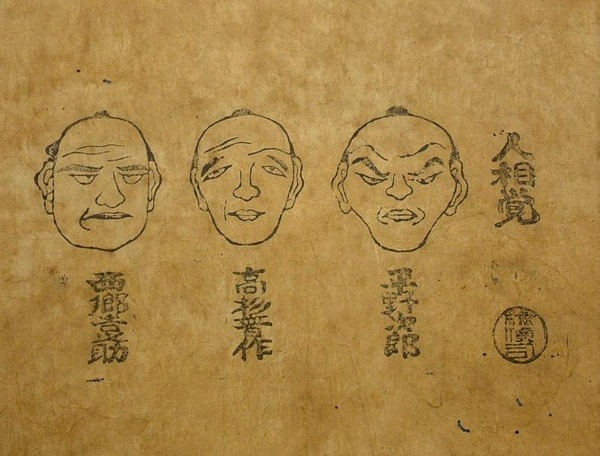 人相覚
平野次郎
高杉晋作
西郷吉助